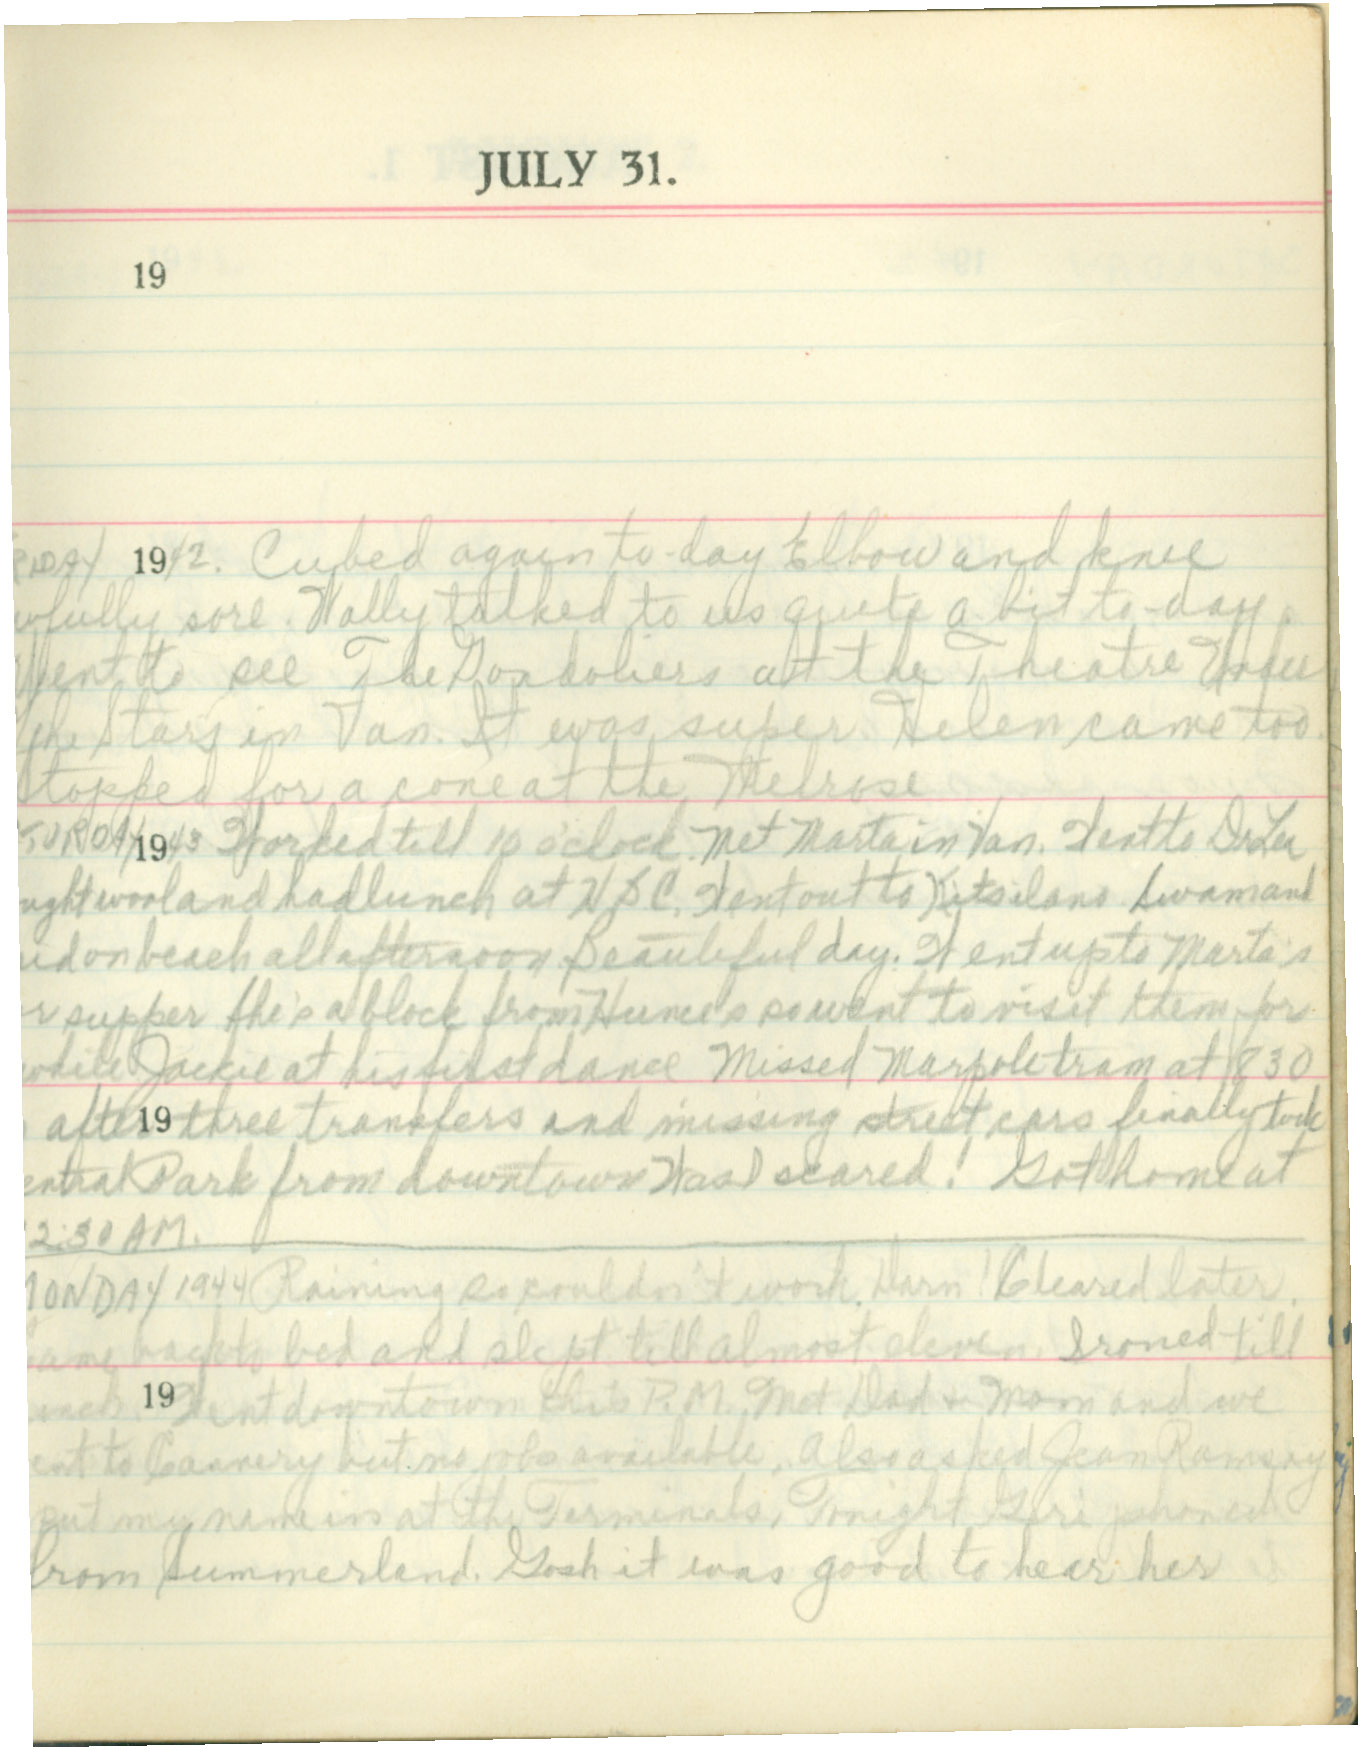 JULY 31.
19
RIDAY 1942. Cubed again to-day Elbow and knee
wfully sore. Wally talked to us quite a bit to-day.
Went to see The Gondoliers at the Theatre Under
the Stars in Van. It was super. Helen came too.
topped for a cone at the Melrose
TURDAY 1943 Worked till 10 o'clock. Met Marta in Van. Went to Dr Lea
ught wool and had lunch at H.B.C. Went out to Kitsilano. Swam and
on beach all afternoon Beautiful day. Went up to Marta's
r supper She's a block from so went to visit them for
while Jackie at his first dance Missed Marpole tram at 830
19 after three transfers and missing street cars finally took
entral Park from downtown Was I scared! Got home at
2:30 AM.
MONDAY 1944 Raining so couldn't work. Darn! Cleared later.
ame back to bed and slept till almost eleven. Ironed till
unch. Went downtown this P.M. Met Dad & Mom and we
19
ent to Cannery but no jobs available. Also asked Jean Ramsay
put my name in at the Terminals. Tonight Geri phoned
from Summerland. Gosh it was good to hear her